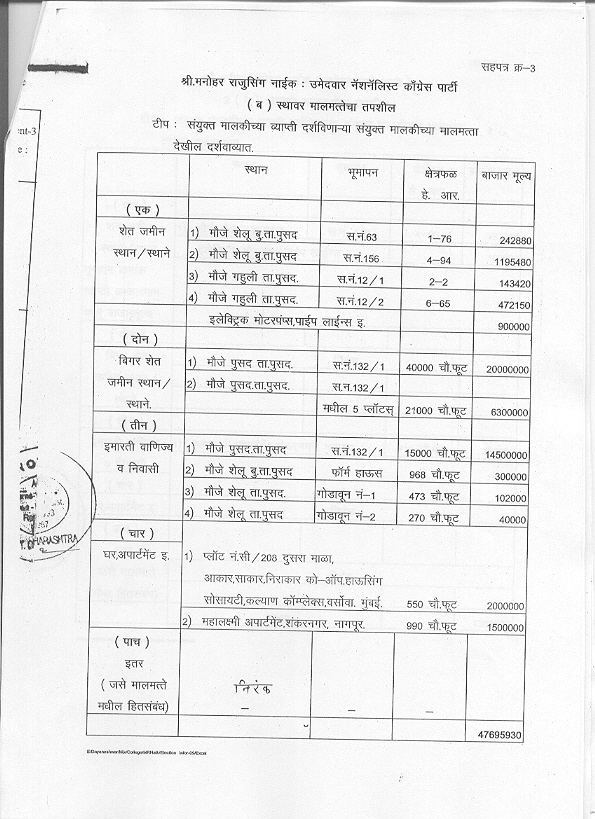 सहपत्र क्र-3
श्री.मनोहर राजुसिंग नाईक : उमेदवार नॅशनॅलिस्ट काँग्रेस पार्टी
( ब ) स्थावर मालमत्तेचा तपशील
टीप : संयुक्त मालकीच्या व्याप्ती दर्शविणाऱ्या संयुक्त मालकीच्या मालमत्ता
देखील दर्शवाव्यात.
स्थान भूमापन क्षेत्रफळ बाजार मूल्य
हे. आर.
( एक )
शेत जमीन 1) मौजे शेलू बु.ता.पुसद स.नं.63 1-76 242880
स्थान/स्थाने 2) मौजे शेलू बु.ता.पुसद स.नं.156 4-94 1195480
3) मौजे गहुली ता.पुसद. स.नं.12/1 2-2 143420
4) मौजे गहुली ता.पुसद. स.नं.12/2 6-65 472150
इलेक्ट्रिक मोटरपंप्स,पाईप लाईन्स इ. 900000
( दोन )
बिगर शेत 1) मौजे पुसद ता.पुसद. स.नं.132/1 40000 चौ.फूट 20000000
जमीन स्थान/ 2) मौजे पुसद.ता.पुसद. स.न.132/1
स्थाने. मधील 5 प्लॉटस् 21000 चौ.फूट 6300000
( तीन )
इमारती वाणिज्य 1) मौजे पुसद.ता.पुसद स.नं.132/1 15000 चौ.फूट 14500000
व निवासी 2) मौजे शेलू बु.ता.पुसद फॉर्म हाऊस 968 चौ.फूट 300000
3) मौजे शेलू ता.पुसद. गोडावून नं-1 473 चौ.फूट 102000
4) मौजे शेलू ता.पुसद गोडावून नं-2 270 चौ.फूट 40000
( चार )
घर,अपार्टमेंट इ. 1) प्लॉट नं.सी/208 दुसरा माळा,
आकार,साकार,निराकार को-ऑप.हाऊसिंग
सोसायटी,कल्याण कॉम्प्लेक्स,वर्सोवा. मुंबई. 550 चौ.फूट 2000000
2) महालक्ष्मी अपार्टमेंट,शंकरनगर, नागपूर. 990 चौ.फूट 1500000
( पाच )
इतर
( जसे मालमत्ते निरंक
मधील हितसंबंध) – – – –
47695930